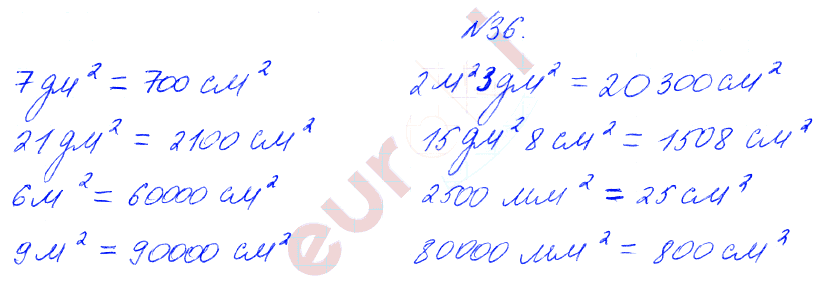 №36.
7 дм² = 700 см²
21 дм² = 2100 см²
6 м² = 60000 см²
9 м² = 90000 см²
2 м² 3 дм² = 20300 см²
15 дм² 8 см² = 1508 см²
2500 мм² = 25 см²
80000 мм² = 800 см²